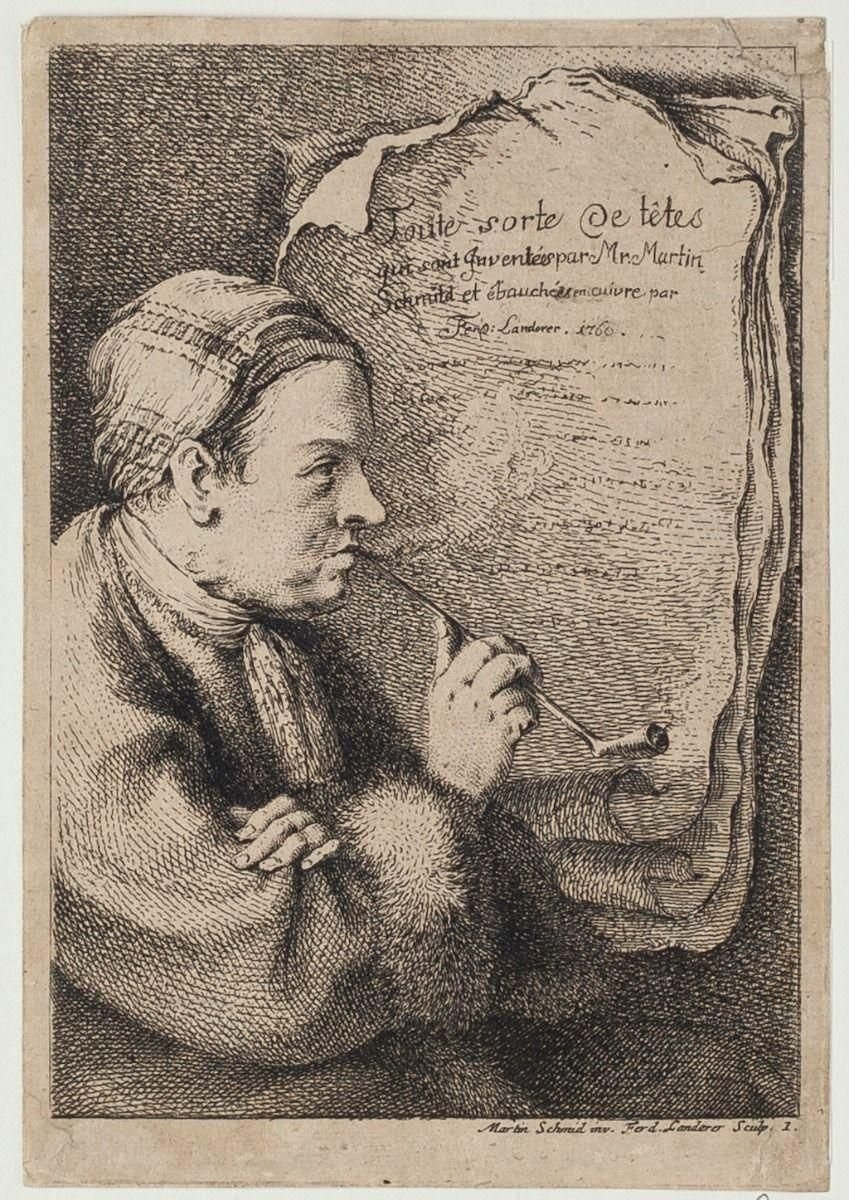 Toute sorte De têtes
qui sont Inventées par Mr. Martin
Schmid et ébauchées en cuivre par
Ferd: Landerer. 1760.
Martin Schmid inv. Ferd. Landerer Sculp. 1.